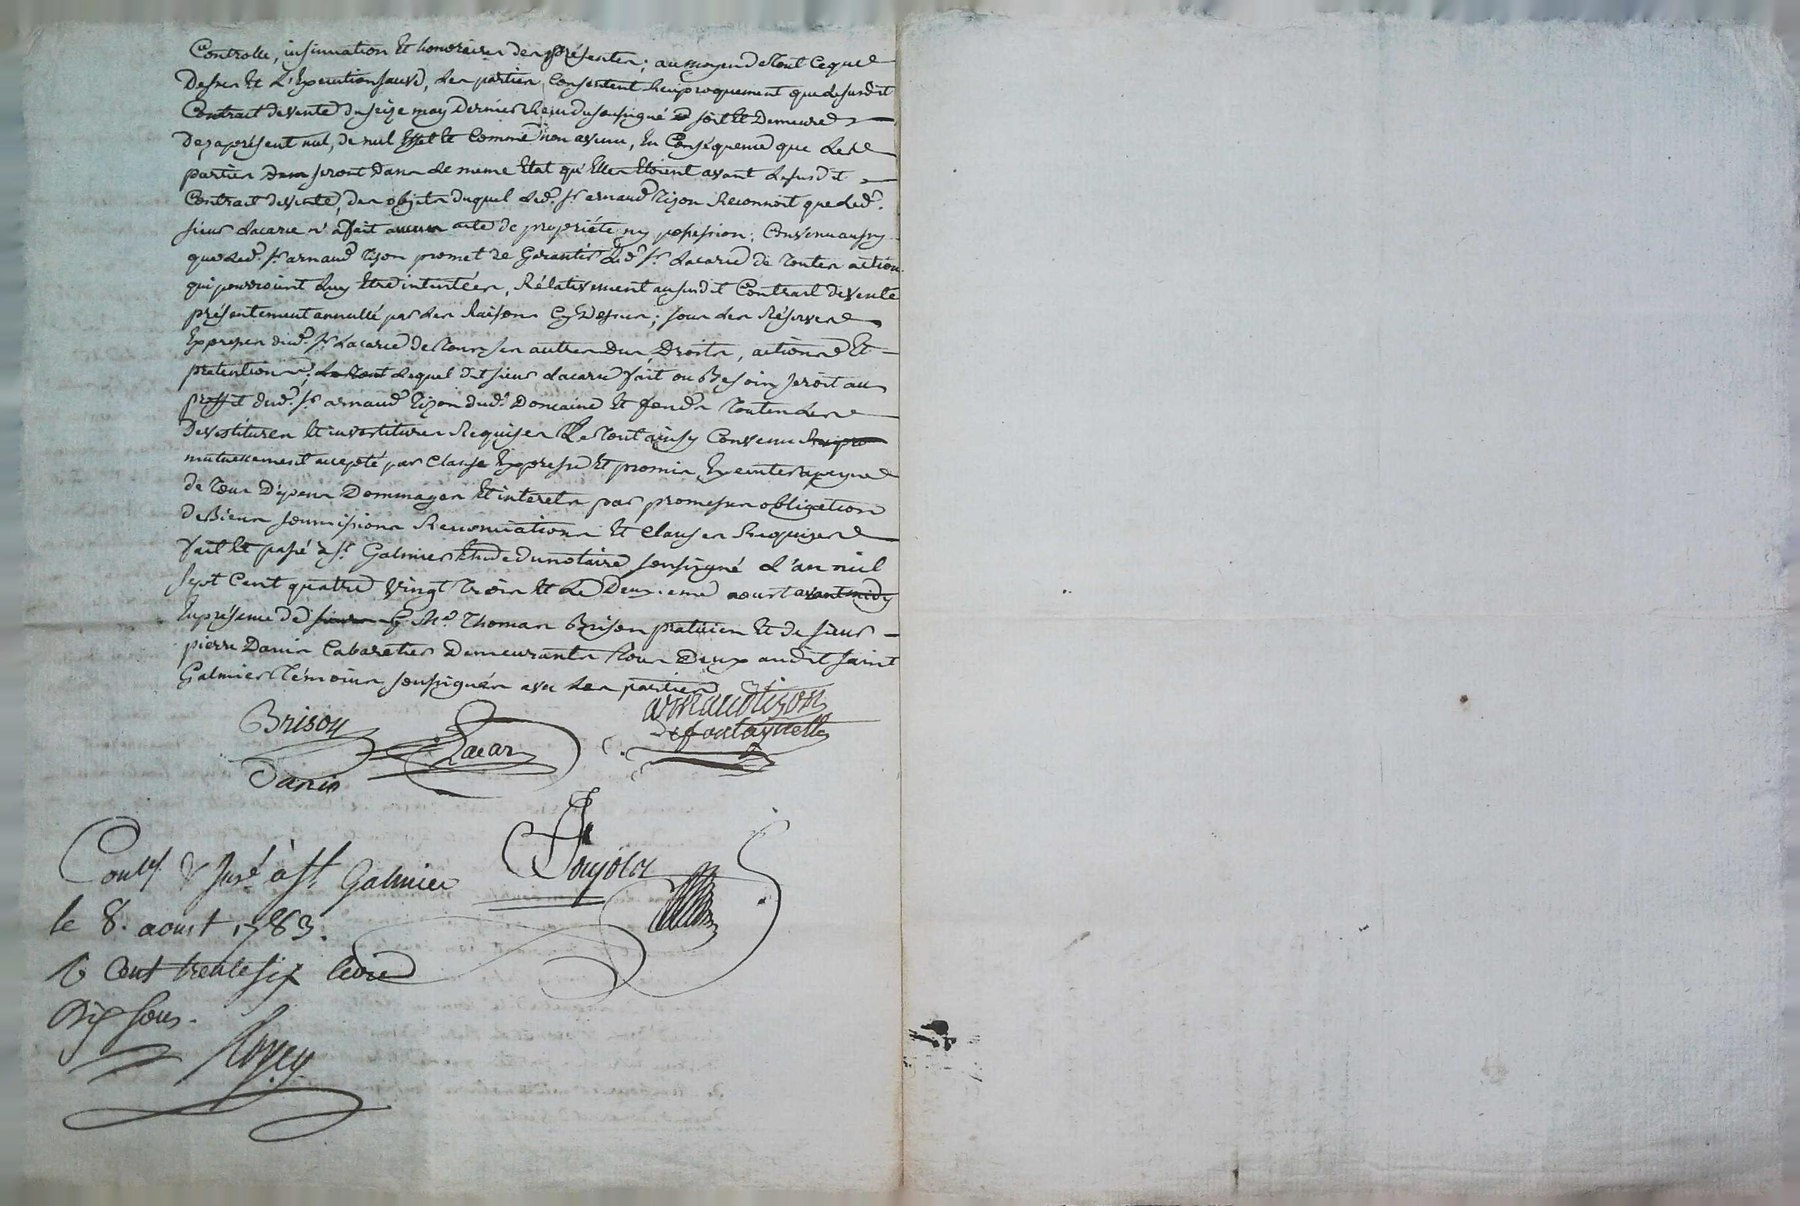 Controlle, insinuation et honoraires des présentes; au moyen de tout ce que
dessus et l'execution sauve, les parties consentent reciproquement que le susdit
Contrat de vente du seize may dernier Reçu du soussigné soit et demeure
dez aprésent nul, de nul effet et comme non avenu, en conséquence que les
parties seront dans le meme état qu'elles étoient avant le susdit
Contrat de vente, des objets duquel led. sr arnaud tizon Reconnoit que led.
sieur Lacarie n'a fait aucun acte de propriété ny possession; convenu aussy
que led. sr arnaud tizon promet de garantir led. sr Lacarie de toutes actions
qui pourroient luy etre intentées, Rélativement au susdit Contrat de vente
présentement annullé par les Raisons cy dessus; sous les Réserves
expresses dud. sr Lacarie de tous ses autres dus, droits, actions et
pretentions, lequel dit sieur Lacarie fait ou Besoin seroit au
proffit dud. sr arnaud tizon dud. Domaine et fonds toutes les
devestitures et investitures Requises Le tout ainsy convenu
mutuellement accepté par clause expresse et promis executer a peyne
de tous dépens dommages et interets par promesses obligation
de Biens soumissions Renonciations et clauses Requises
fait et passé a st Galmier Etude du notaire soussigné L'an mil
sept cent quatre vingt trois et le deuxieme aoust avant midy
en présence de Me Thomas Brison praticien et de sieur
pierre Danis Cabaretier demeurants tous deux audit saint
Galmier témoins soussignés avec les parties
Brison Lacar arnaudtizon
defontaynelle
Danis
Poujols
Contlé & Insé à St Galmier
le 8. aoust 1783.
cent trente six livres
dix sous.